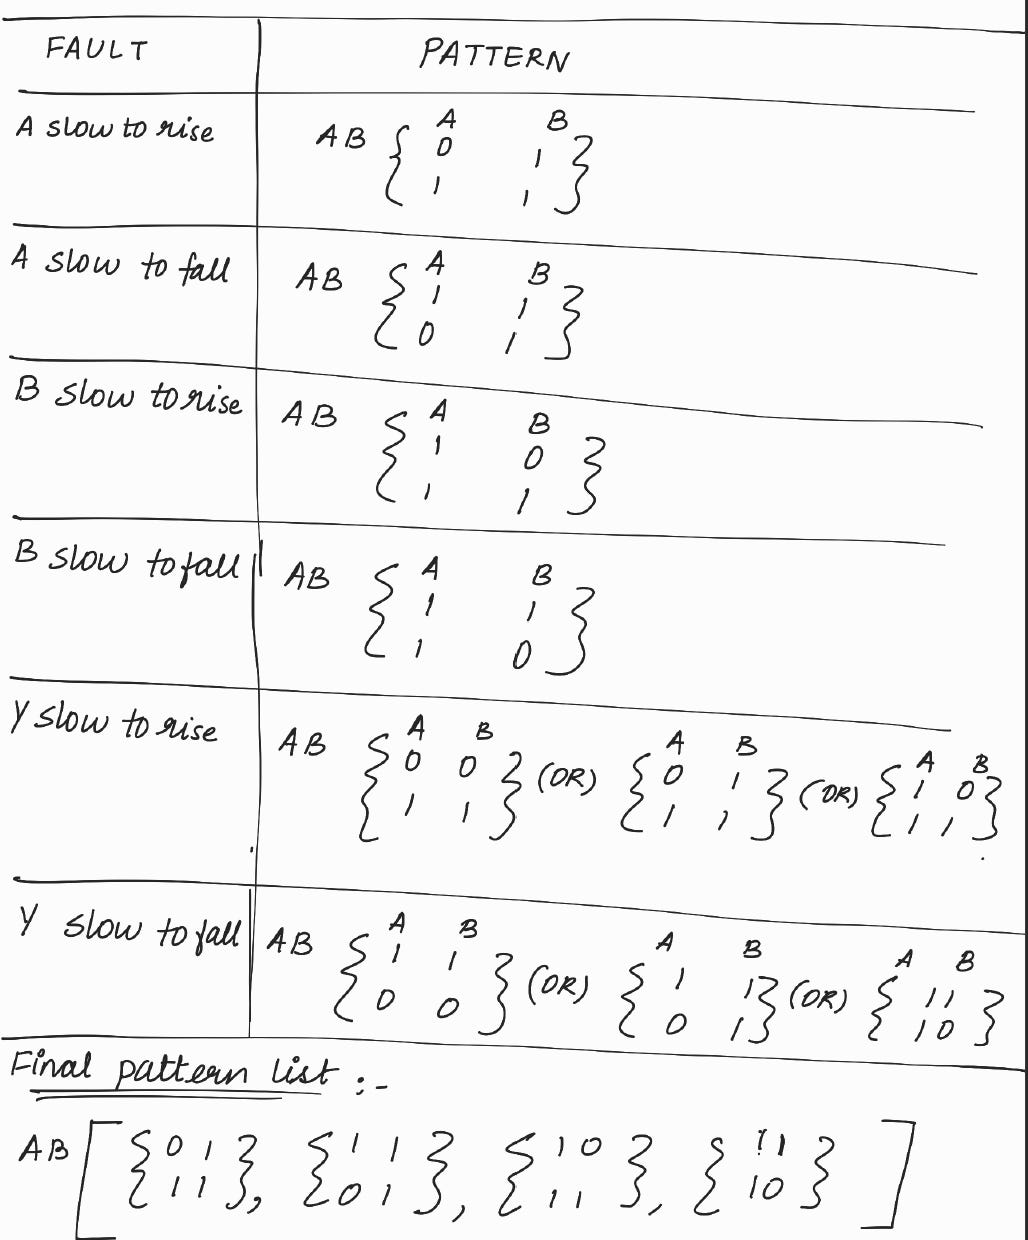 FAULT PATTERN
A slow to rise AB { A B
0 1
1 1 }
A slow to fall AB { A B
1 1
0 1 }
B slow to rise AB { A B
1 0
1 1 }
B slow to fall AB { A B
1 1
1 0 }
Y slow to rise AB { A B } (OR) { A B } (OR) { A B }
0 0 0 1 1 0
1 1 1 1 1 1
Y slow to fall AB { A B } (OR) { A B } (OR) { A B }
1 1 1 1 1 1
0 0 0 1 1 0
Final pattern list :-
AB [ { 0 1 }, { 1 1 }, { 1 0 }, { 1 1 } ]
1 1 0 1 1 1 1 0